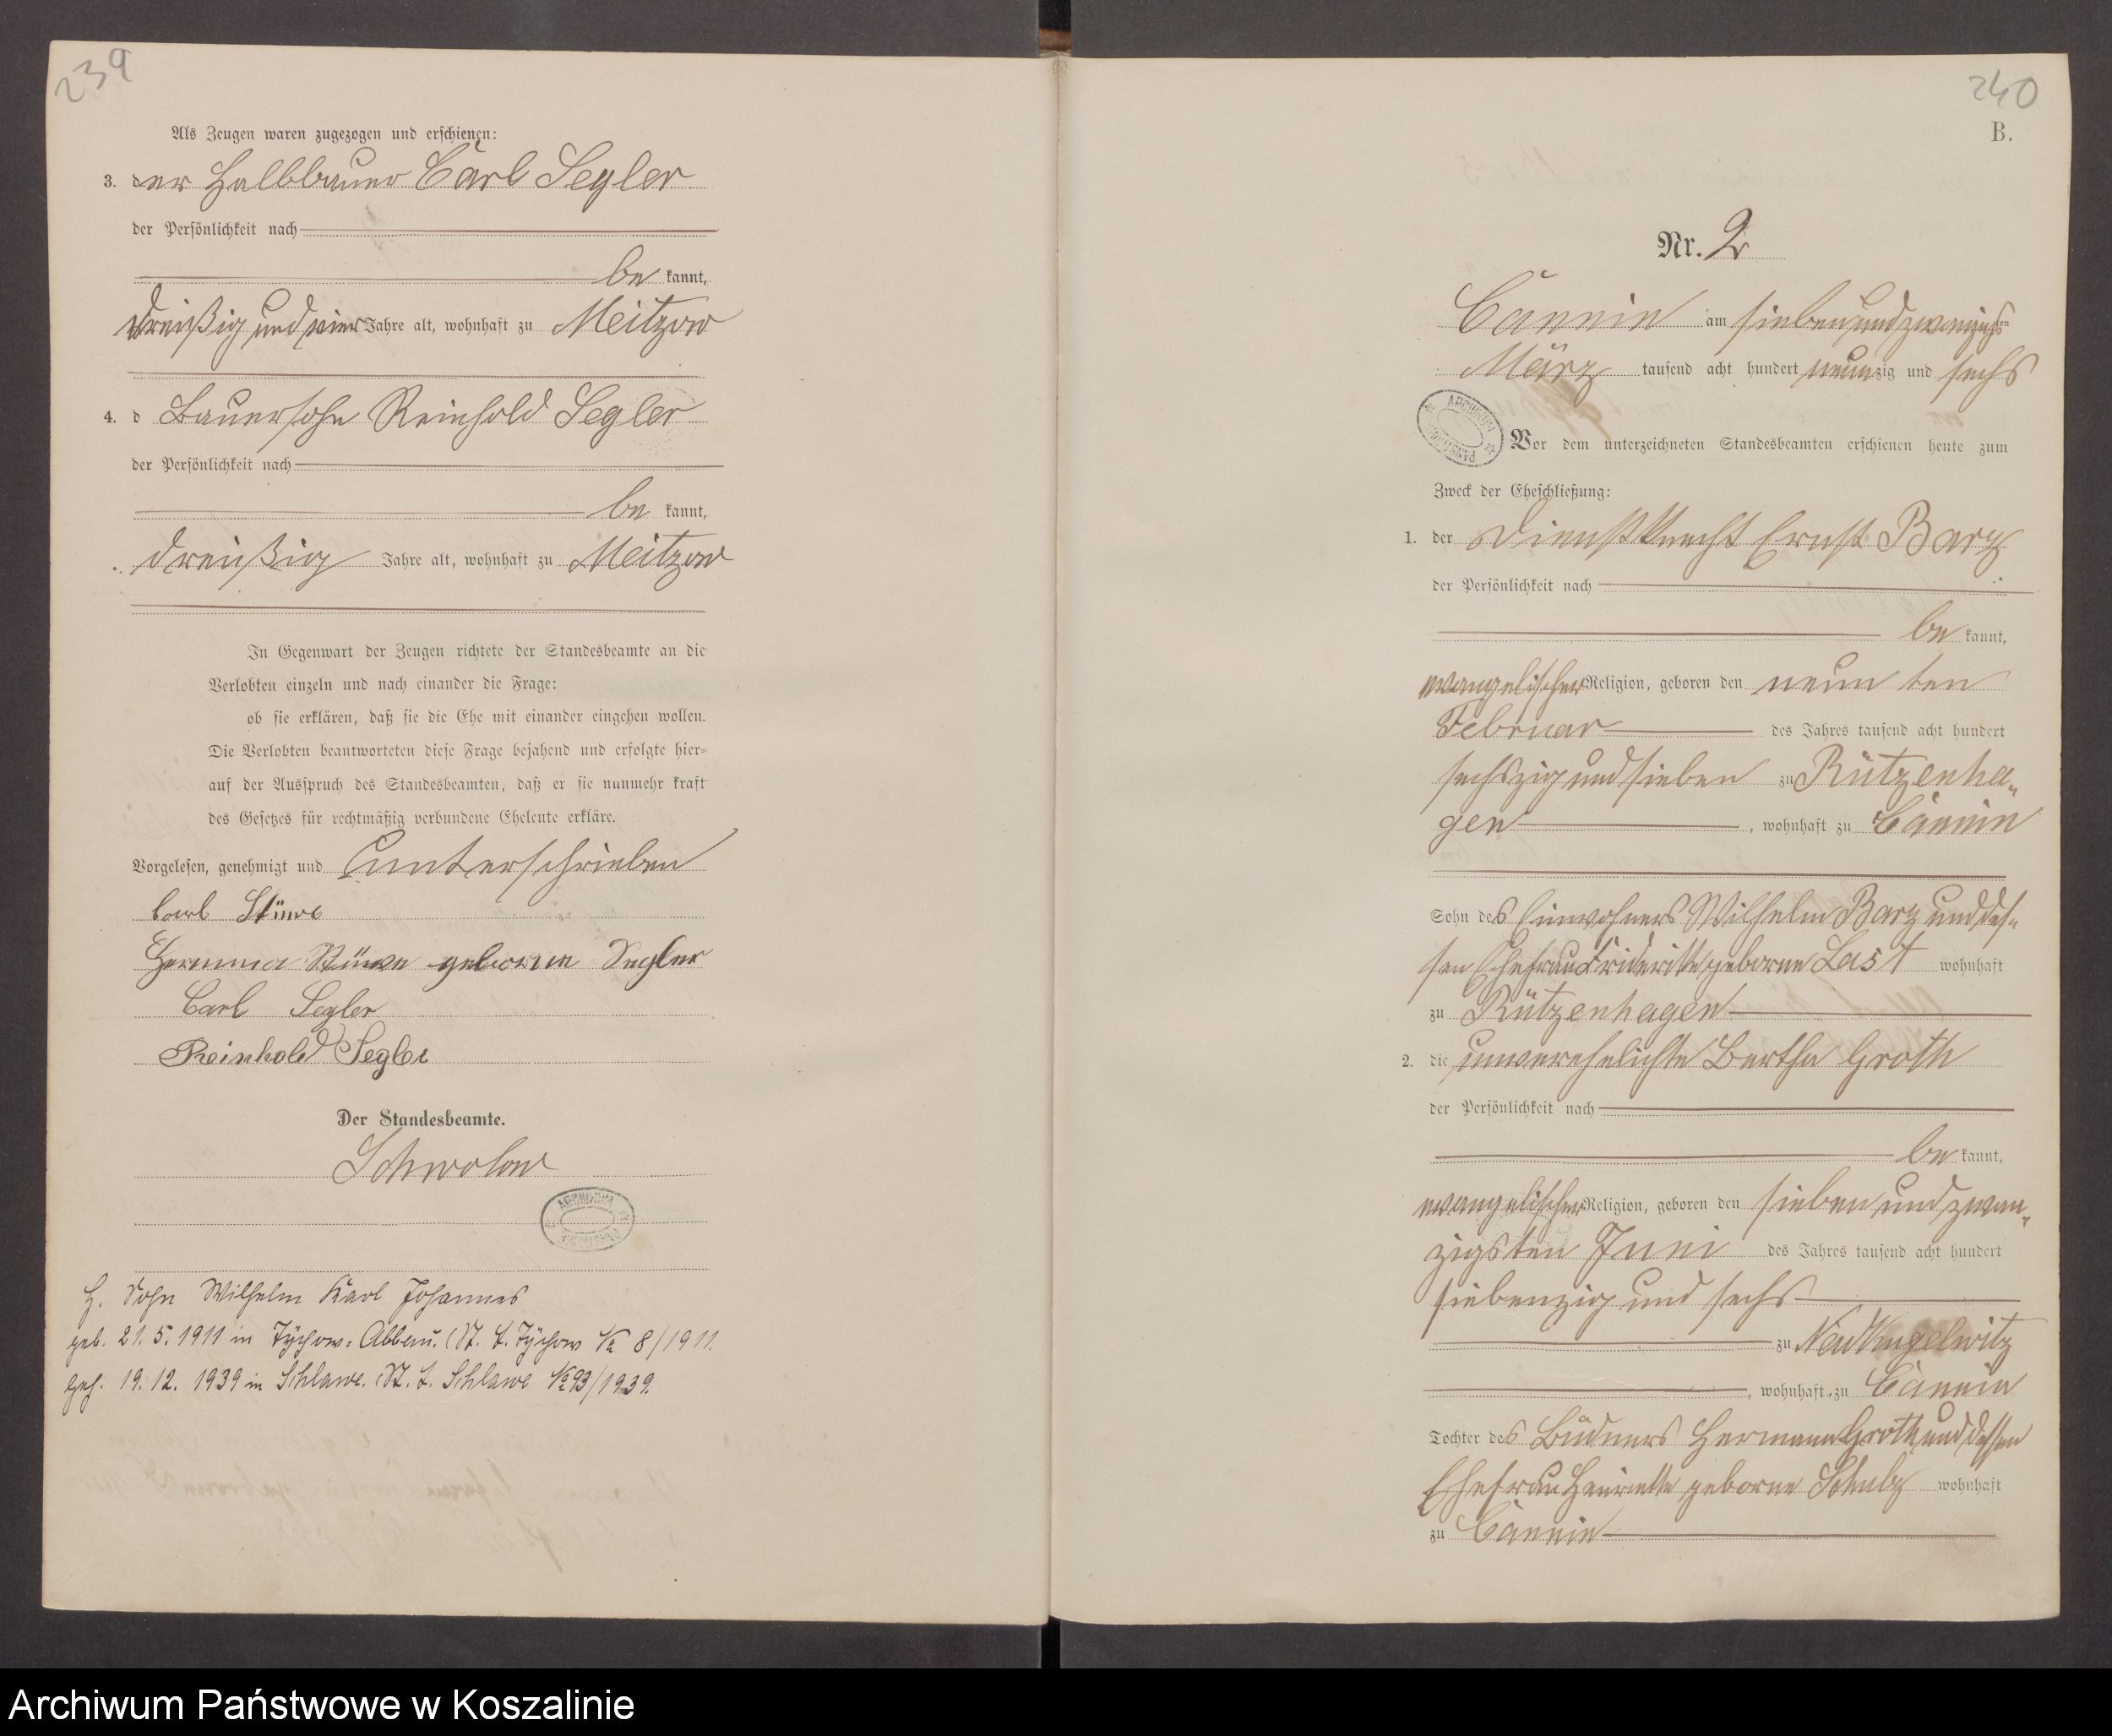 239
Als Zeugen waren zugezogen und erschienen:
3. der Halbbauer Carl Segler
der Persönlichkeit nach
be kannt,
dreißig und vier Jahre alt, wohnhaft zu Meitzow
4. d Bauersohn Reinhold Segler
der Persönlichkeit nach
be kannt,
dreißig Jahre alt, wohnhaft zu Meitzow
In Gegenwart der Zeugen richtete der Standesbeamte an die
Verlobten einzeln und nach einander die Frage:
ob sie erklären, daß sie die Ehe mit einander eingehen wollen.
Die Verlobten beantworteten diese Frage bejahend und erfolgte hier=
auf der Ausspruch des Standesbeamten, daß er sie nunmehr kraft
des Gesetzes für rechtmäßig verbundene Eheleute erkläre.
Vorgelesen, genehmigt und unterschrieben
Carl Stüwe
Stüwe geborene Segler
Carl Segler
Reinhold Segler
Der Standesbeamte.
Schwolow
H. Sohn Wilhelm Karl Johannes
geb. 21. 5. 1911 in Tychow-Abbau. (St. A. Tychow № 8/1911.
geh. 19. 12. 1939 in Schlawe. (St. A. Schlawe № 93/1939.
240
B.
Nr. 2
Cannin am siebenundzwanzigsten
März tausend acht hundert neunzig und sechs
ARCHIWUM PAŃSTWOWE
Vor dem unterzeichneten Standesbeamten erschienen heute zum
Zweck der Eheschließung:
1. der Dienstknecht Ernst Barz
der Persönlichkeit nach
be kannt,
evangelischer Religion, geboren den neun ten
Februar des Jahres tausend acht hundert
sechszig und sieben zu Rützenha-
gen, wohnhaft zu Cannin
Sohn des Einwohners Wilhelm Barz und des-
sen Ehefrau Friderike geborne Last wohnhaft
zu Rützenhagen
2. die unverehelichte Bertha Groth
der Persönlichkeit nach
be kannt,
evangelischer Religion, geboren den sieben und zwan-
zigsten Juni des Jahres tausend acht hundert
siebenzig und sechs
zu Neu Kugelwitz
, wohnhaft zu Cannin
Tochter des Büdners Hermann Groth und dessen
Ehefrau Henriette geborne Schulz wohnhaft
zu Cannin
Archiwum Państwowe w Koszalinie